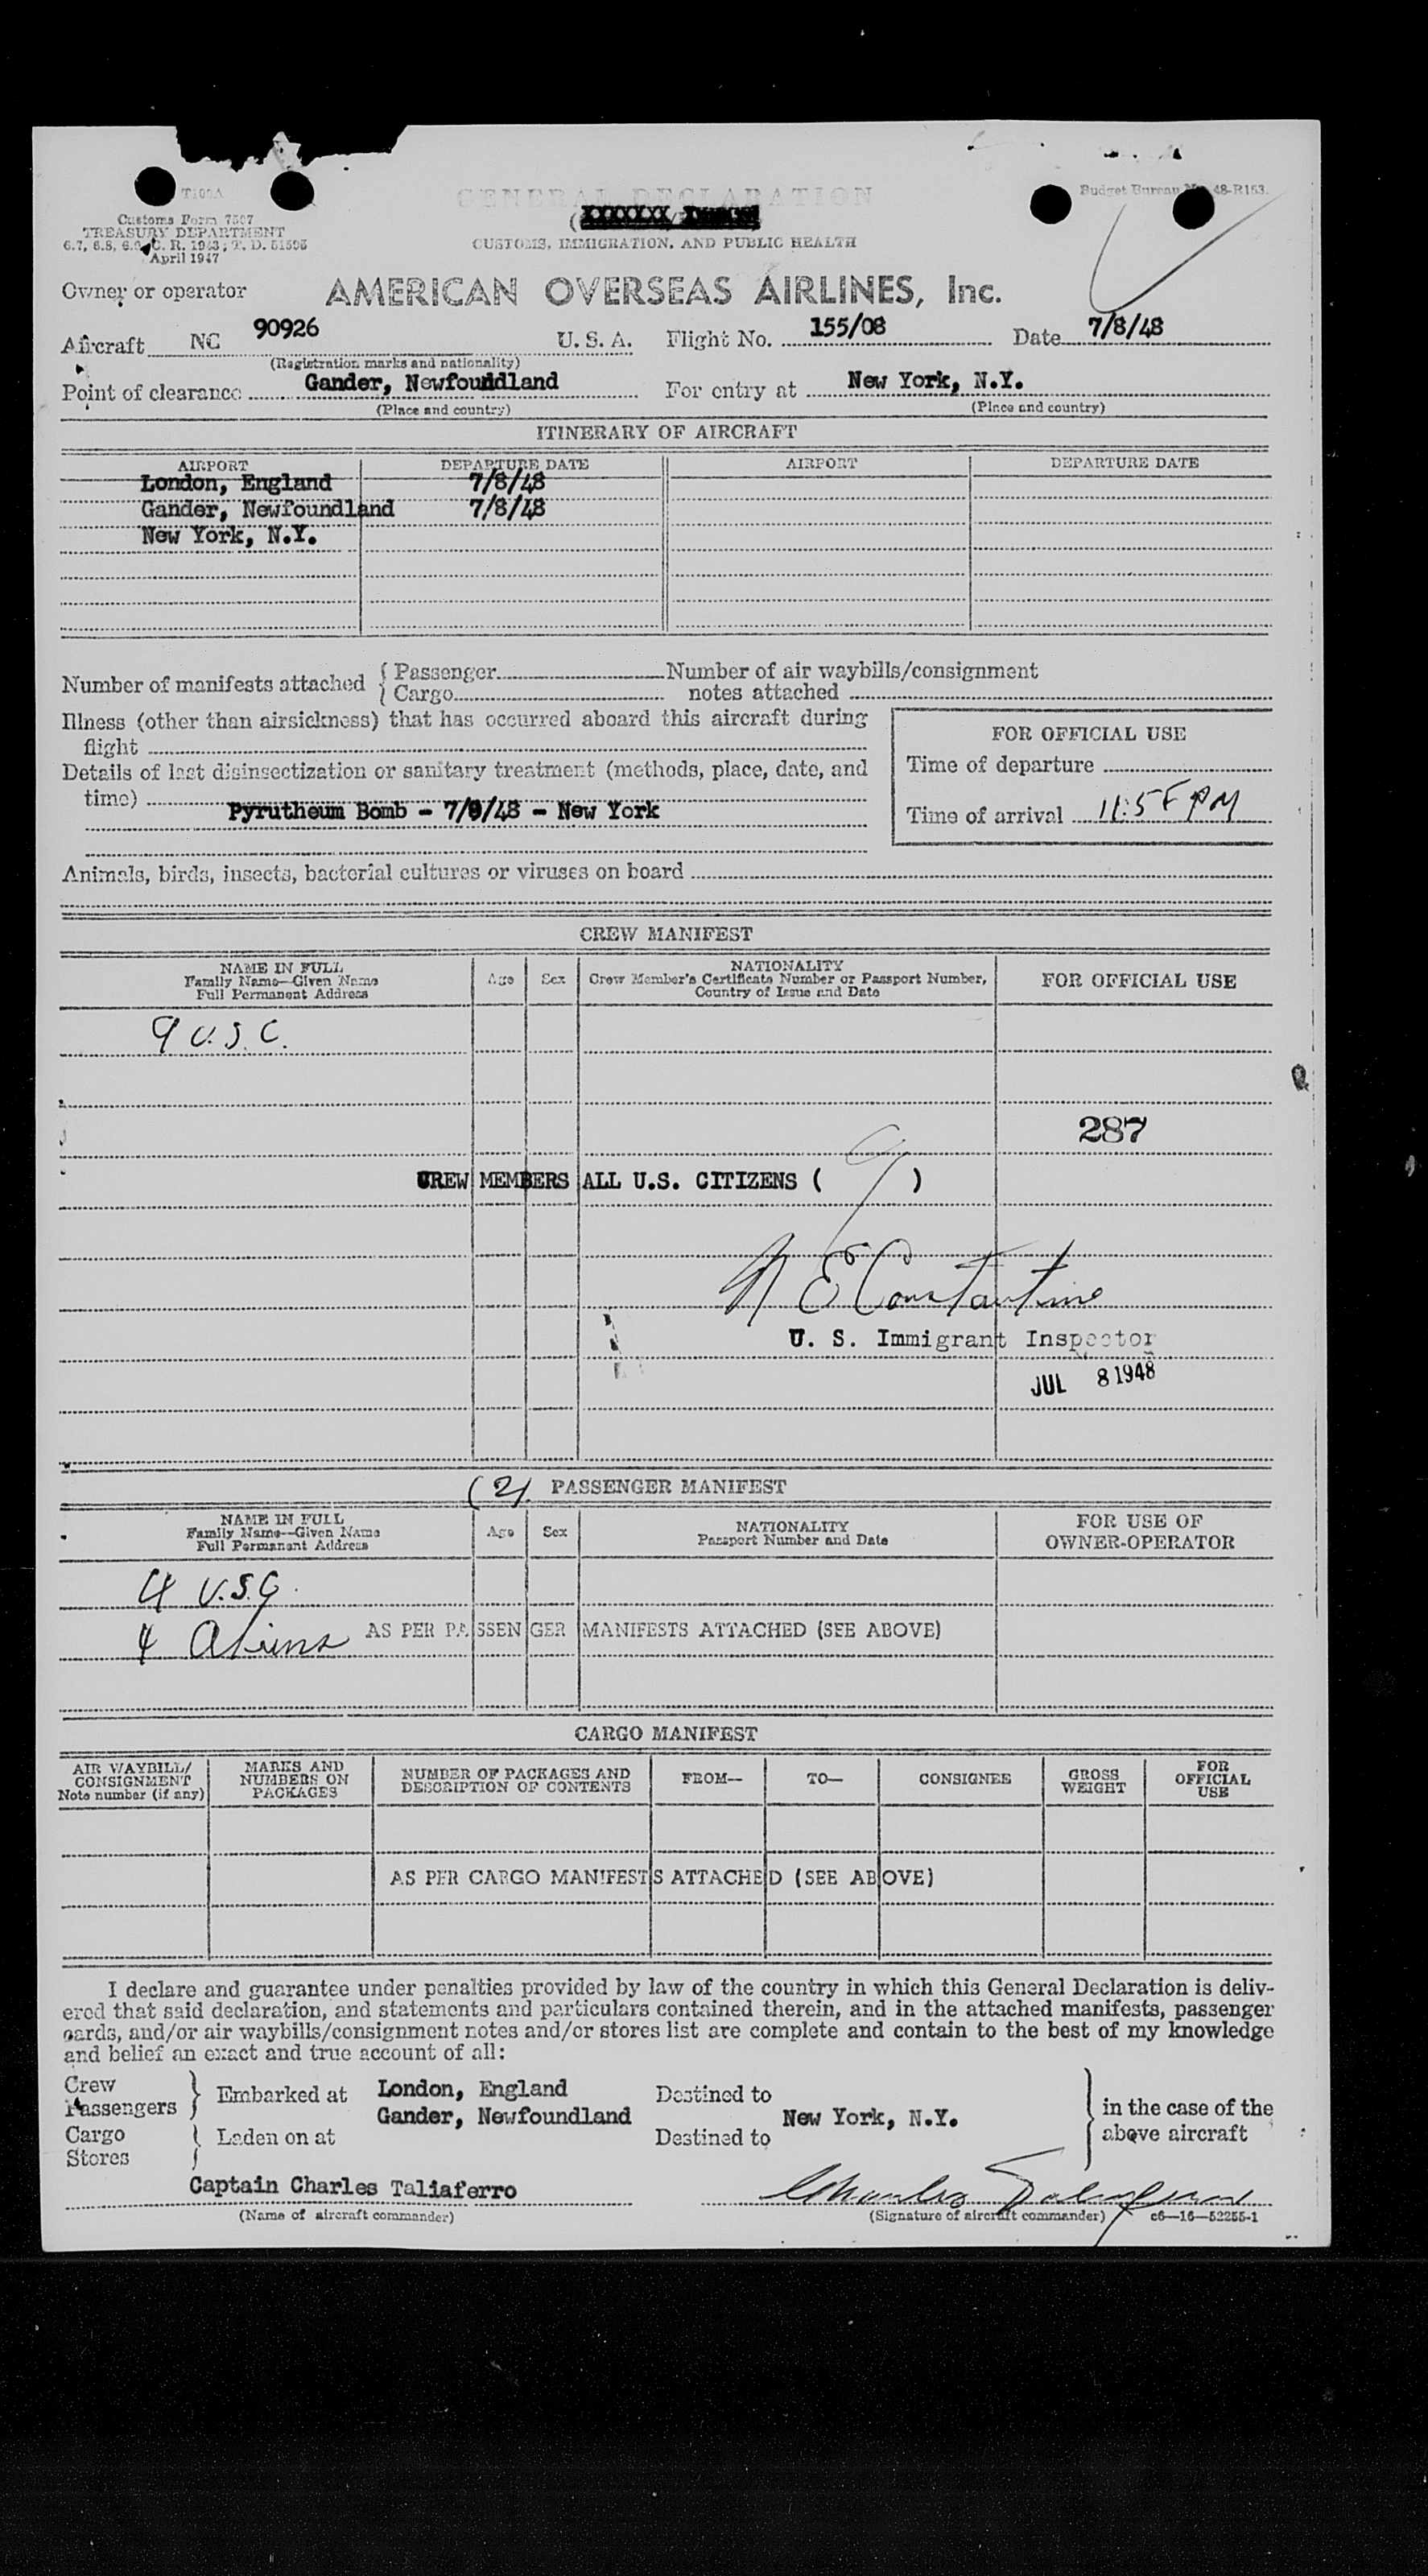 T100A
Customs Form 7507
TREASURY DEPARTMENT
April 1947
GENERAL DECLARATION
Budget Bureau No. 48-R153.
CUSTOMS, IMMIGRATION, AND PUBLIC HEALTH
Owner or operator AMERICAN OVERSEAS AIRLINES, Inc.
Aircraft NC 90926 U. S. A. Flight No. 155/08 Date 7/8/48
(Registration marks and nationality)
Point of clearance Gander, Newfoundland For entry at New York, N.Y.
(Place and country) (Place and country)
ITINERARY OF AIRCRAFT
AIRPORT DEPARTURE DATE AIRPORT DEPARTURE DATE
London, England 7/8/48
Gander, Newfoundland 7/8/48
New York, N.Y.
Number of manifests attached { Passenger Number of air waybills/consignment
{ Cargo notes attached
Illness (other than airsickness) that has occurred aboard this aircraft during
flight
Details of last disinsectization or sanitary treatment (methods, place, date, and
time)
Pyrutheum Bomb - 7/9/48 - New York
FOR OFFICIAL USE
Time of departure
Time of arrival PM
Animals, birds, insects, bacterial cultures or viruses on board
CREW MANIFEST
NAME IN FULL
Family Name—Given Name
Full Permanent Address
Age Sex
NATIONALITY
Crew Member's Certificate Number or Passport Number,
Country of Issue and Date
FOR OFFICIAL USE
9 U.S.C.
287
CREW MEMBERS ALL U.S. CITIZENS ( 9 )
N E Constantine
U. S. Immigrant Inspector
JUL 8 1948
(2) PASSENGER MANIFEST
NAME IN FULL
Family Name—Given Name
Full Permanent Address
Age Sex
NATIONALITY
Passport Number and Date
FOR USE OF
OWNER-OPERATOR
4 U.S.C.
4 Aliens AS PER PASSENGER MANIFESTS ATTACHED (SEE ABOVE)
CARGO MANIFEST
AIR WAYBILL/
CONSIGNMENT
Note number (if any)
MARKS AND
NUMBERS ON
PACKAGES
NUMBER OF PACKAGES AND
DESCRIPTION OF CONTENTS
FROM—
TO—
CONSIGNEE
GROSS
WEIGHT
FOR
OFFICIAL
USE
AS PER CARGO MANIFESTS ATTACHED (SEE ABOVE)
I declare and guarantee under penalties provided by law of the country in which this General Declaration is deliv-
ered that said declaration, and statements and particulars contained therein, and in the attached manifests, passenger
cards, and/or air waybills/consignment notes and/or stores list are complete and contain to the best of my knowledge
and belief an exact and true account of all:
Crew
Passengers } Embarked at London, England Destined to
Gander, Newfoundland New York, N.Y.
Cargo
Stores } Laden on at Destined to
in the case of the
above aircraft
Captain Charles Taliaferro Charles Taliaferro
(Name of aircraft commander) (Signature of aircraft commander) c6—16—52255-1